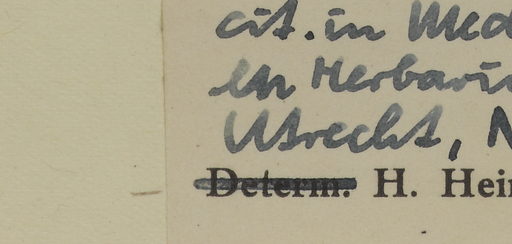 cit. in Med
en Herbari
Utrecht, N
Determ. H. Hei